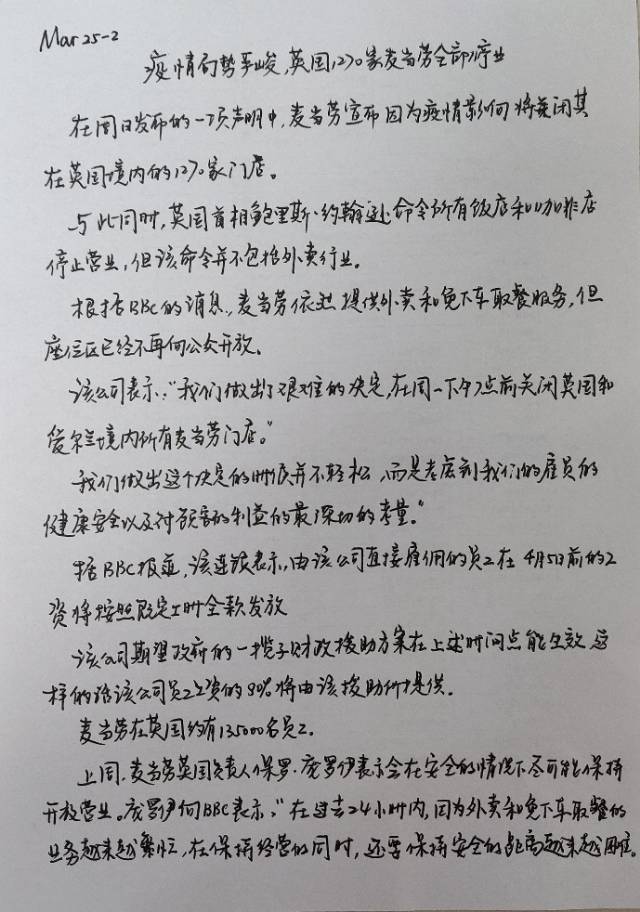 Mar 25-2
疫情局势严峻,英国1270家麦当劳全部停业
在周日发布的一项声明中,麦当劳宣布因为疫情影响将关闭其
在英国境内的1270家门店。
与此同时,英国首相鲍里斯·约翰逊命令所有饭店和咖啡店
停止营业,但该命令并不包括外卖行业。
根据BBC的消息,麦当劳依然提供外卖和免下车取餐服务,但
座位区已经不再向公众开放。
该公司表示:“我们做出了艰难的决定,在周一下午7点前关闭英国和
爱尔兰境内所有麦当劳门店。”
我们做出这个决定的时候并不轻松,而是考虑到我们的雇员的
健康安全以及对顾客的利益的最深切的考量。”
据BBC报道,该连锁表示,由该公司直接雇佣的员工在4月5日前的工
资将按照既定工时全款发放
该公司期望政府的一揽子财政援助方案在上述时间点能生效,这
样的话该公司员工工资的80%将由该援助所提供。
麦当劳在英国约有135000名员工。
上周,麦当劳英国负责人保罗·庞罗伊表示会在安全的情况下尽可能保持
开放营业。庞罗伊向BBC表示,“在过去24小时内,因为外卖和免下车取餐的
业务越来越繁忙,在保持经营的同时,还要保持安全的距离越来越困难。